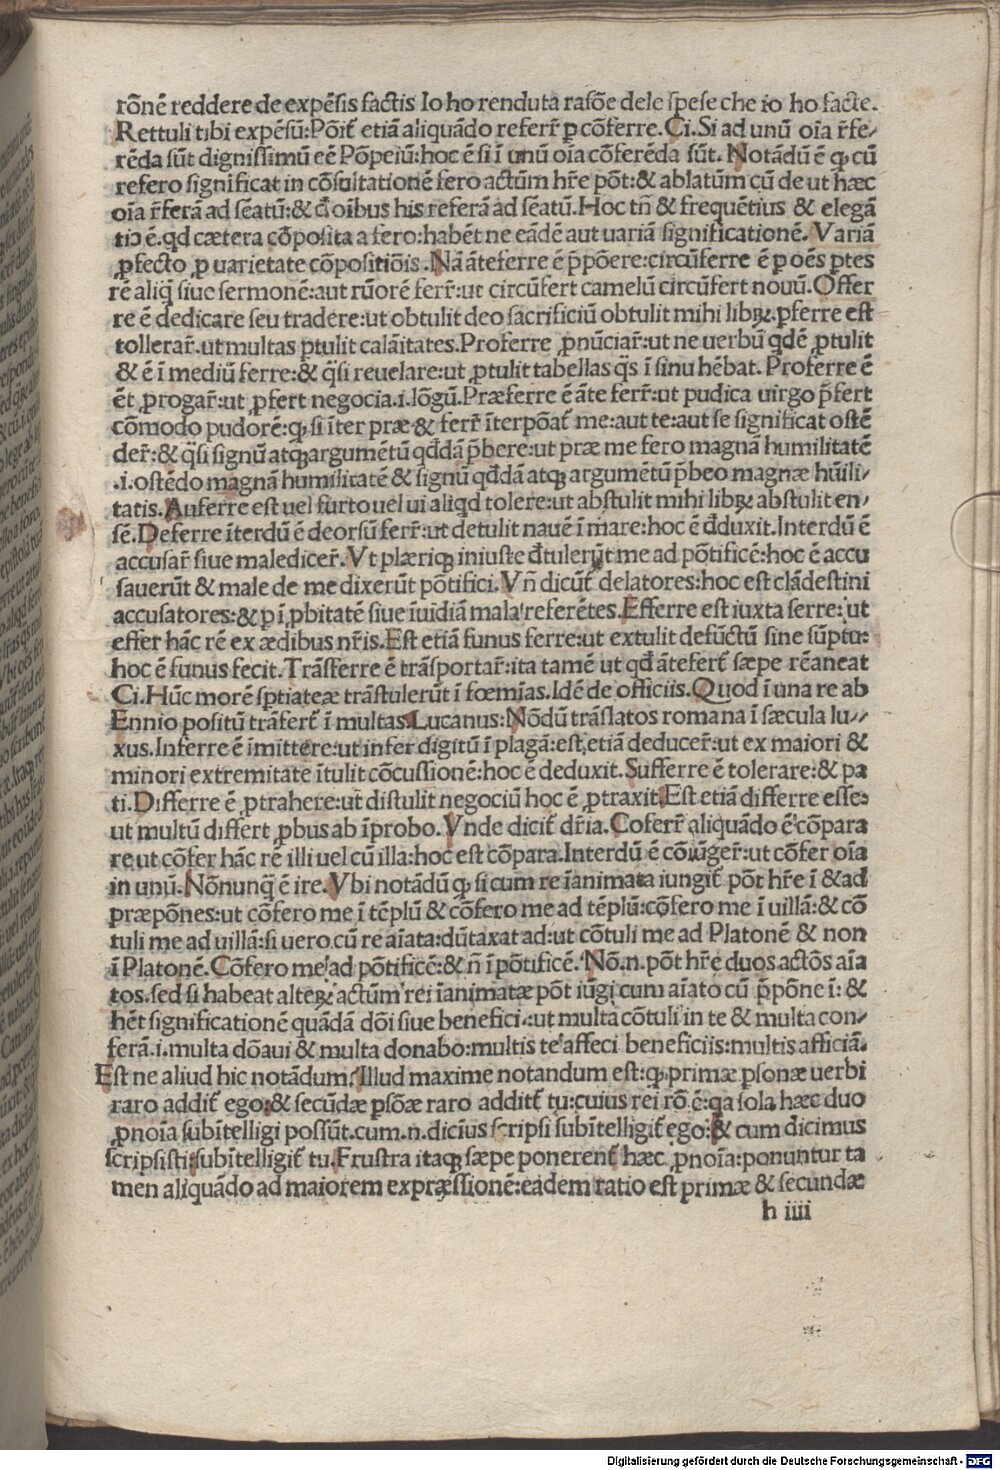 rõnẽ reddere de expẽsis factis Io ho renduta rasõe dele spese che io ho facte.
Rettuli tibi expẽsũ:Põit̃ etiã aliquãdo referr̃ ꝑ cõferre.Ci.Si ad unũ oĩa r̃fe/
rẽda sũt dignissimũ eẽ Põpeiũ:hoc ẽ si ĩ unũ oĩa cõferẽda sũt.Notãdũ ẽ ꝙ cũ
refero significat in cõsultationẽ fero actũm hr̃e põt:& ablatũm cũ de ut hæc
oĩa r̃ferã ad sẽatũ:& đ oĩbus his referã ad sẽatũ.Hoc tñ & frequẽtius & elegã
tiɔ ẽ.qđ cætera cõposita a fero:habẽt ne eãdẽ aut uariã significationẽ. Variã
ꝓfecto ꝓ uarietate cõpositiõis.Nã ãteferre ẽ p̃põere:circũferre ẽ ꝑ oẽs ꝑtes
rẽ aliq̃ siue sermonẽ:aut rũorẽ ferr̃:ut circũfert camelũ circũfert nouũ.Offer
re ẽ dedicare seu tradere:ut obtulit deo sacrificiũ obtulit mihi libꝝ.ꝑferre est
tollerar̃.ut multas ꝑtulit calãitates.Proferre ꝓnũciar̃:ut ne uerbũ qđẽ ꝓtulit
& ẽ ĩ mediũ ferre:& q̃si reuelare:ut ꝓtulit tabellas q̃s ĩ sinu hẽbat. Proferre ẽ
ẽt ꝓrogar̃:ut ꝓfert negocia.i.lõgũ.Præferre ẽ ãte ferr̃:ut pudica uirgo p̃fert
cõmodo pudorẽ:ꝙ si ĩter præ & ferr̃ ĩterpõat̃ me:aut te:aut se significat ostẽ
der̃:& q̃si signũ atqꝫ argumẽtũ qđdã p̃bere:ut præ me fero magnã humilitatẽ
.i.ostẽdo magnã humilitatẽ & signũ qđdã atqꝫ argumẽtũ p̃beo magnæ hũili/
tatis.Auferre est uel furto uel ui aliqđ tolere:ut abstulit mihi libꝝ abstulit en/
sẽ.Deferre ĩterdũ ẽ deorsũ ferr̃:ut detulit nauẽ ĩ mare:hoc ẽ đduxit.Interdũ ẽ
accusar̃ siue maledicer̃.Vt plæriqꝫ iniuste đtulerũt me ad põtificẽ:hoc ẽ accu
sauerũt & male de me dixerũt põtifici.Vñ dicũt̃ delatores:hoc est clãdestini
accusatores:& ꝑ ĩꝓbitatẽ siue ĩuidiã mala referẽtes.Efferre est iuxta ferre:ut
effer hãc rẽ ex ædibus nr̃is.Est etiã funus ferre:ut extulit defũctũ sine sũptu:
hoc ẽ funus fecit.Trãsferre ẽ trãsportar̃:ita tamẽ ut qđ ãtefert̃ sæpe rẽaneat
Ci.Hũc morẽ sꝑtiateæ trãstulerũt ĩ fœmĩas.Idẽ de officiis.Quod ĩ una re ab
Ennio positũ trãfert̃ ĩ multas.Lucanus:Nõdũ trãslatos romana ĩ sæcula lu//
xus.Inferre ẽ ĩmittere:ut infer digitũ ĩ plagã:est etiã deducer̃:ut ex maiori &
minori extremitate ĩtulit cõcussionẽ:hoc ẽ deduxit.Sufferre ẽ tolerare:& pa
ti.Differre ẽ ꝓtrahere:ut distulit negociũ hoc ẽ ꝓtraxit.Est etiã differre esse:
ut multũ differt ꝓbus ab ĩprobo.Vnde dicit̃ dr̃ia.Coferr̃ aliquãdo ẽ cõpara
re ut cõfer hãc rẽ illi uel cũ illa:hoc est cõpara.Interdũ ẽ cõiũger̃:ut cõfer oĩa
in unũ.Nõnunq̃ ẽ ire.Vbi notãdũ ꝙ si cum re ĩanimata iungit̃ põt hr̃e ĩ & ad
præpõnes:ut cõfero me ĩ tẽplũ & cõfero me ad tẽplũ:cõfero me ĩ uillã:& cõ
tuli me ad uillã:si uero cũ re aĩata:dũtaxat ad:ut cõtuli me ad Platonẽ & non
ĩ Platonẽ.Cõfero me ad põtificẽ:& ñ ĩ põtificẽ. Nõ.n.põt hr̃e duos actõs aĩa
tos.sed si habeat alteꝝ actũm rei ĩanimatæ põt iũgi cum aĩato cũ p̃põne ĩ: &
hẽt significationẽ quãdã dõi siue benefici.:ut multa cõtuli in te & multa con/
ferã.i.multa dõaui & multa donabo:multis te affeci beneficiis:multis afficiã.
Est ne aliud hic notãdum?Illud maxime notandum est:ꝙ primæ ꝑsonæ uerbi
raro addit̃ ego:& secũdæ ꝑsõæ raro addit̃ tu:cuius rei rõ ẽ:qa sola hæc duo
ꝓnoĩa subĩtelligi possũt.cum.n.dicĩus scripsi subĩtelligit̃ ego:& cum dicimus
scripsisti:subĩtelligit̃ tu.Frustra itaqꝫ sæpe ponerent̃ hæc ꝓnoĩa:ponuntur ta
men aliquãdo ad maiorem expræssionẽ:eadem ratio est primæ & secundæ
h iiii
Digitalisierung gefördert durch die Deutsche Forschungsgemeinschaft - DFG